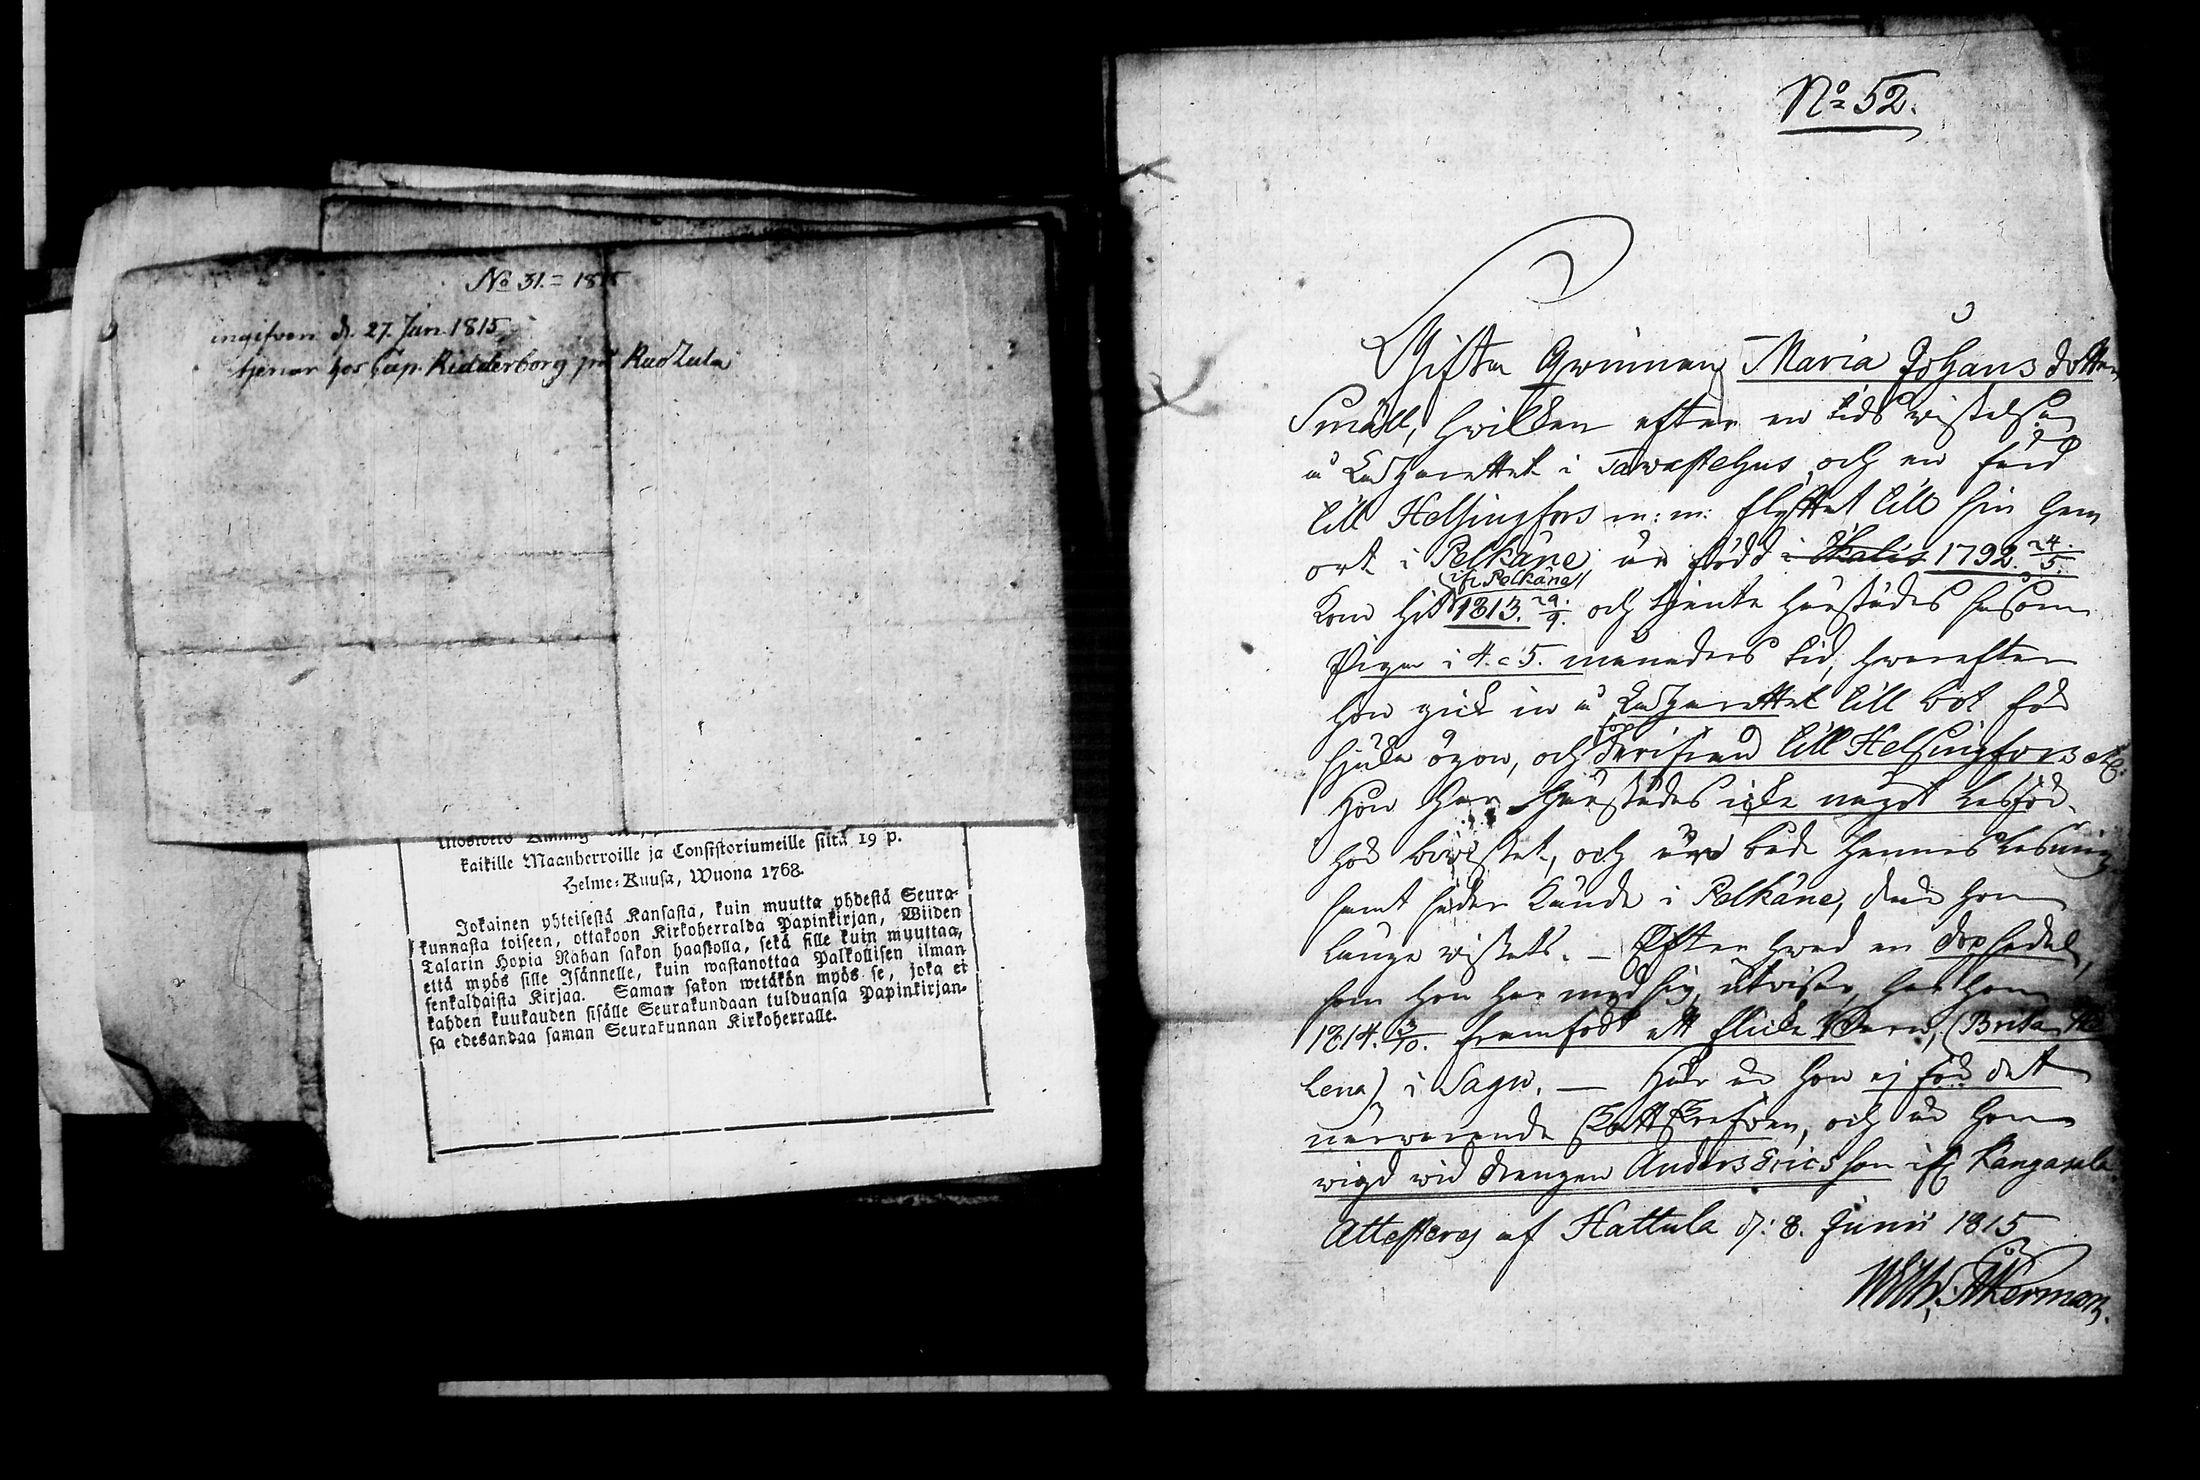 No 31. = 1815
ingifven d. 27. Jan. 1815
tjenar hos Cap. Ridderborg på
kaikille Maanherroille ja Consistoriumeille siitä 19 p.
Helme-Kuusa, Wuona 1768.
Jokainen yhteisestä Kansasta, kuin muutta yhdestä Seura-
kunnasta toiseen, ottakoon Kirkoherralda Papinkirjan, Wiiden
Talarin Hopia Rahan sakon haastolla, sekä sille kuin muuttaa,
että myös sille Isännelle, kuin wastanottaa Palkollisen ilman
senkaldaista Kirjaa. Saman sakon wetäkön myös se, joka ei
kahden kuukauden sisälle Seurakundaan tulduansa Papinkirjan-
sa edesandaa saman Seurakunnan Kirkoherralle.
No 52.
Gifta Qwinnan Maria Johans dotter
Småll, hwilken efter en tids wistelse
å Lazarettet i Tawastehus och en färd
till Helsingfors m:m: flyttat till sin hem
ort i Pelkäne, är född i 1792 24/5.
(ifr. Pelkäne)
Kom hit 1813. 29/9. och tjente härstädes såsom
Piga i 4. a 5. månaders tid, hwarefter
hon gick in å Lazarettet till bot för
sjuka ögon, och derifrån till Helsingfors etc.
Hon har härstädes icke något
bewistat, och är både hennes läsning
samt seder kände i Pelkäne, der hon
länge wistats. – Efter hwad en dopsedel,
som hon har med sig, utwisar, har hon
1814. 3/10. framfödt ett flicke barn, (Brita He
lena) i Sagu. – Här är hon ej för det
närwarande Skattskrefwen, och är hon
wigd wid drengen Anders Ericsson ifr. Kangasala
Attesteras af Hattula d: 8. Junii 1815
Wilh. Åkerman.